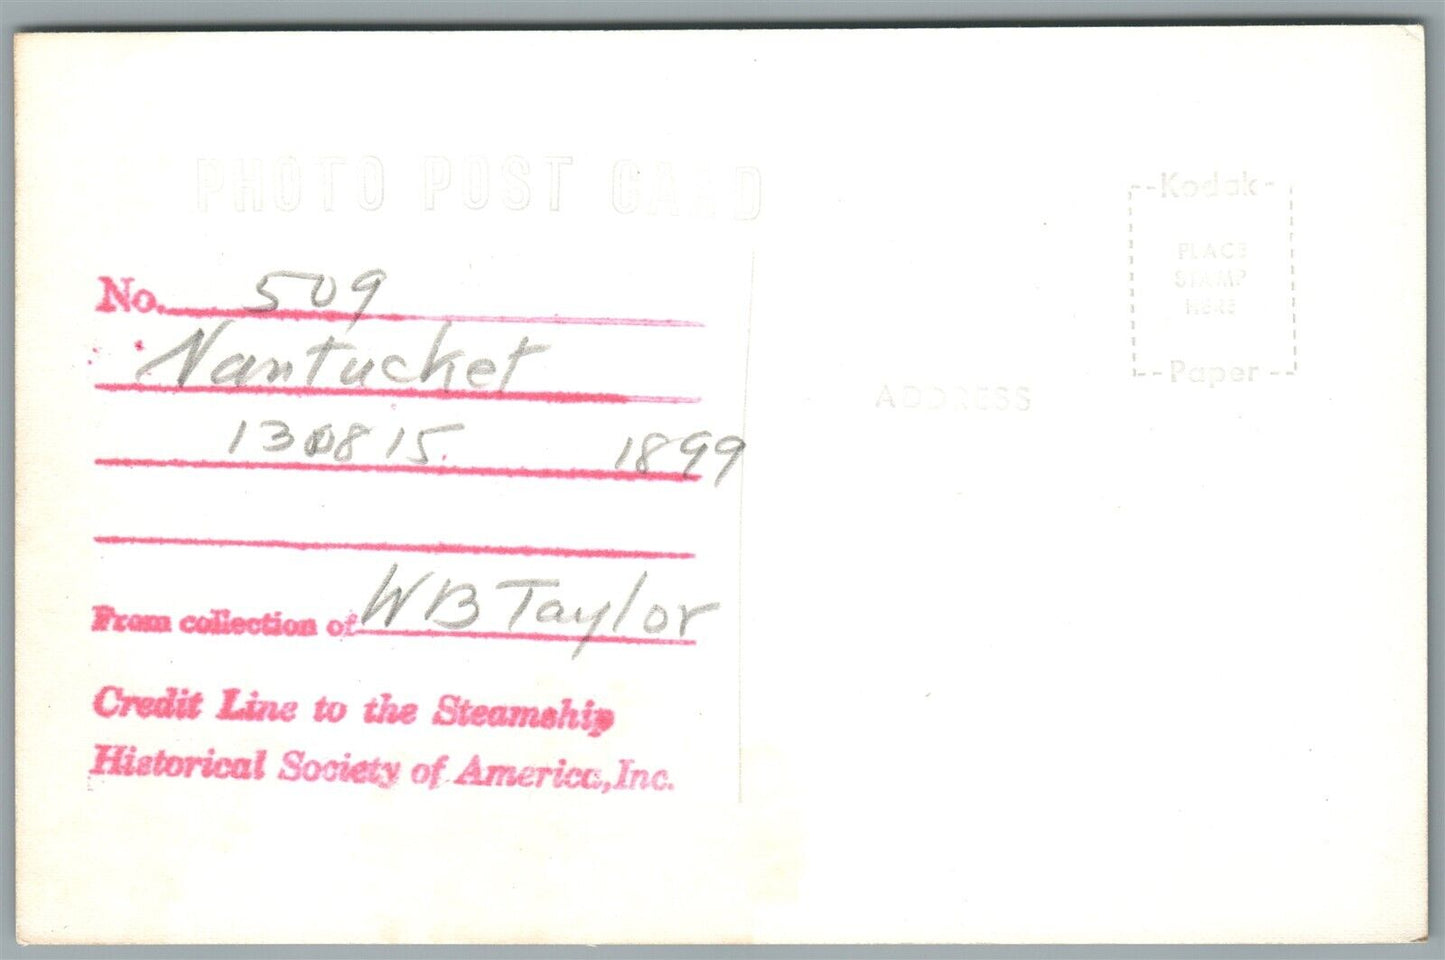 PHOTO POST CARD
Kodak
PLACE
STAMP
HERE
Paper
ADDRESS
No. 509
Nantucket
130815. 1899
From collection of WB Taylor
Credit Line to the Steamship
Historical Society of America, Inc.